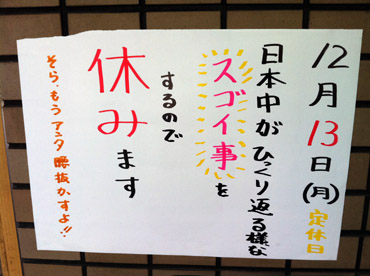 12月13日(月)定休日
日本中がひっくり返る様な
スゴイ事を
するので
休みます
そら、もうアンタ腰抜かすよ!!